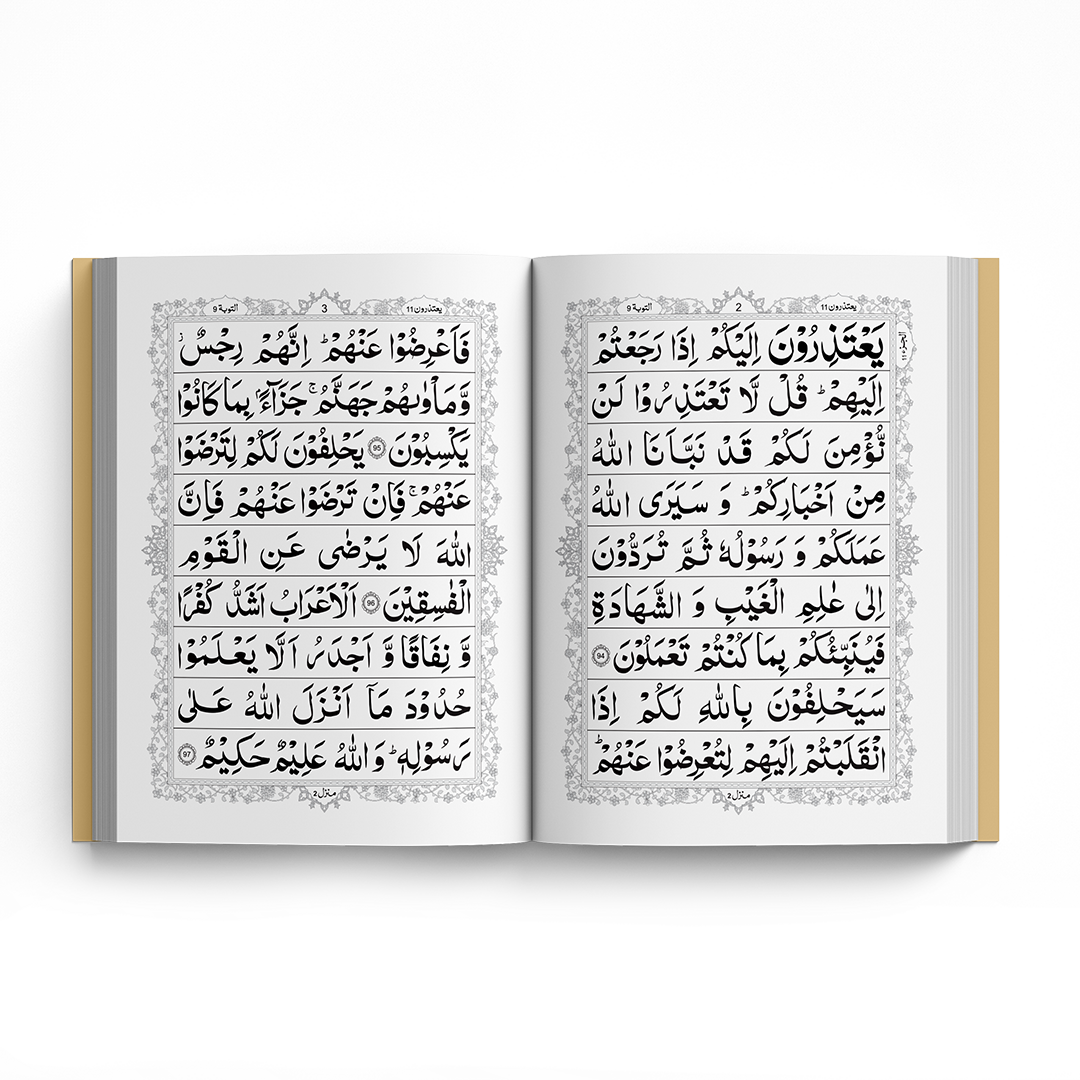 يعتذرون 11
2
التوبة 9
الجزء 11
يَعْتَذِرُوْنَ اِلَيْكُمْ اِذَا رَجَعْتُمْ
اِلَيْهِمْ ؕ قُلْ لَّا تَعْتَذِرُوْا لَنْ
نُّؤْمِنَ لَكُمْ قَدْ نَبَّاَنَا اللّٰهُ
مِنْ اَخْبَارِكُمْ ؕ وَ سَيَرَى اللّٰهُ
عَمَلَكُمْ وَ رَسُوْلُهٗ ثُمَّ تُرَدُّوْنَ
اِلٰى عٰلِمِ الْغَيْبِ وَ الشَّهَادَةِ
فَيُنَبِّئُكُمْ بِمَا كُنْتُمْ تَعْمَلُوْنَ 94
سَيَحْلِفُوْنَ بِاللّٰهِ لَكُمْ اِذَا
انْقَلَبْتُمْ اِلَيْهِمْ لِتُعْرِضُوْا عَنْهُمْ ؕ
منزل 2
يعتذرون 11
3
التوبة 9
فَاَعْرِضُوْا عَنْهُمْ ؕ اِنَّهُمْ رِجْسٌ ؗ
وَّ مَاْوٰىهُمْ جَهَنَّمُ ۚ جَزَآءًۢ بِمَا كَانُوْا
يَكْسِبُوْنَ 95 يَحْلِفُوْنَ لَكُمْ لِتَرْضَوْا
عَنْهُمْ ۚ فَاِنْ تَرْضَوْا عَنْهُمْ فَاِنَّ
اللّٰهَ لَا يَرْضٰى عَنِ الْقَوْمِ
الْفٰسِقِيْنَ 96 اَلْاَعْرَابُ اَشَدُّ كُفْرًا
وَّ نِفَاقًا وَّ اَجْدَرُ اَلَّا يَعْلَمُوْا
حُدُوْدَ مَاۤ اَنْزَلَ اللّٰهُ عَلٰى
رَسُوْلِهٖ ؕ وَ اللّٰهُ عَلِيْمٌ حَكِيْمٌ 97
منزل 2